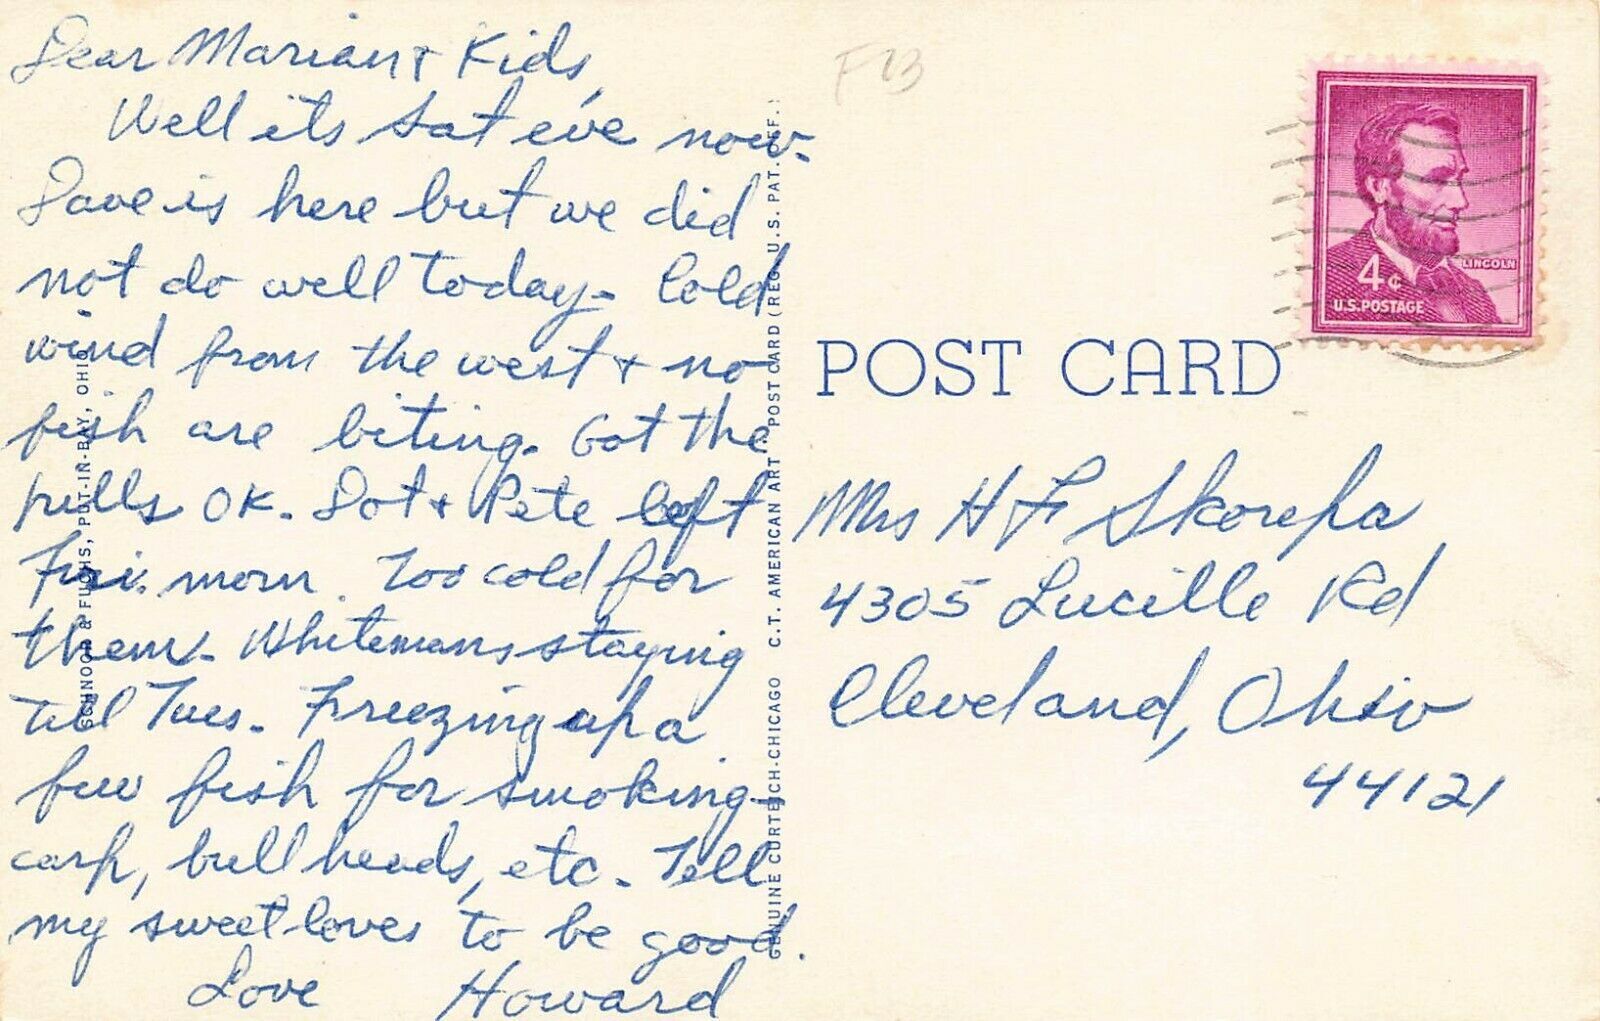 Dear Marian & Kids,
Well its Sat eve now.
Dave is here but we did
not do well today. Cold
wind from the west & no
fish are biting. Got the
pills OK. Dot & Pete left
Fri. morn. Too cold for
them. Whitemans staying
till Tues. Freezing up a
few fish for smoking -
carp, bullheads, etc. Tell
my sweet loves to be good.
Love Howard
SCHNOOR & FUCHS, PUT-IN-BAY, OHIO
GENUINE CURTEICH-CHICAGO C.T. AMERICAN ART POST CARD (REG. U.S. PAT. OFF.)
F23
LINCOLN
4¢
U.S. POSTAGE
POST CARD
Mrs H F Skorepa
4305 Lucille Rd
Cleveland, Ohio
44121